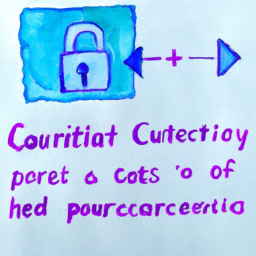 Couritiat Cuttectioy
poret a cots 'o of
hed pourccarceertio